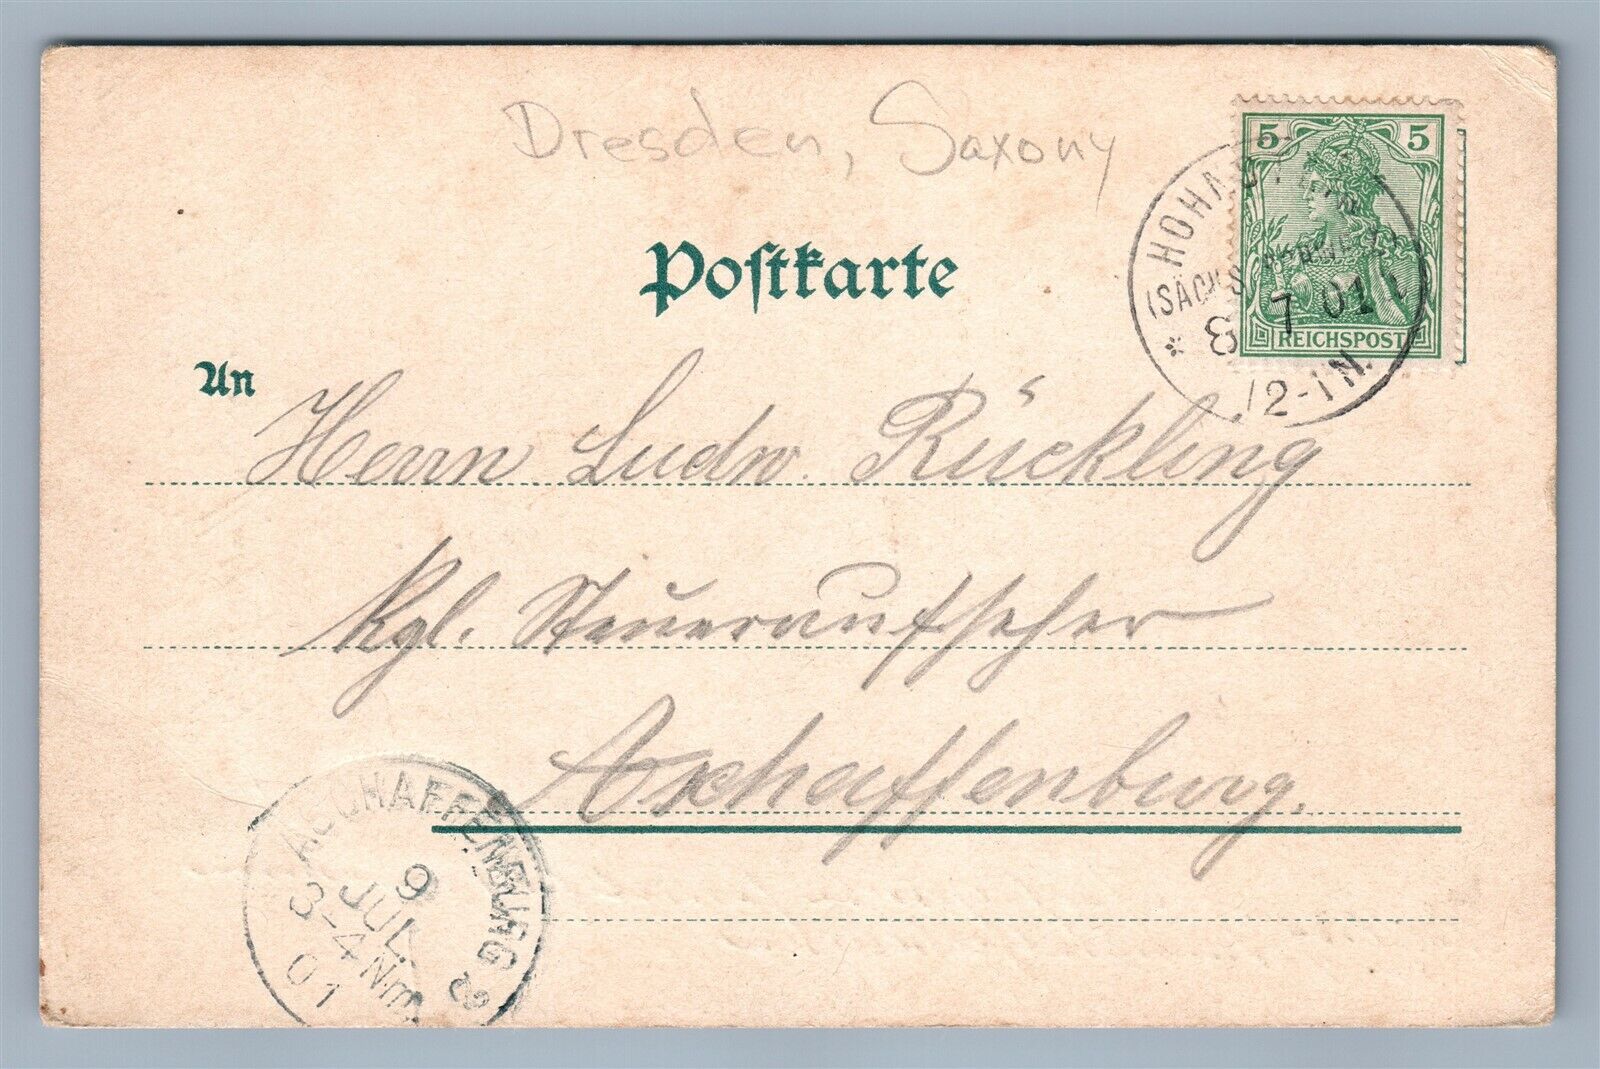 Dresden, Saxony
5 5
REICHSPOST
(SÄCHS.
* 8 7 01
12-1 N.
Postkarte
An
Herrn Ludw. Rückling
Kgl. Steueraufseher
Aschaffenburg.
ASCHAFFENBURG 2
9
JUL
3-4 Nm.
01